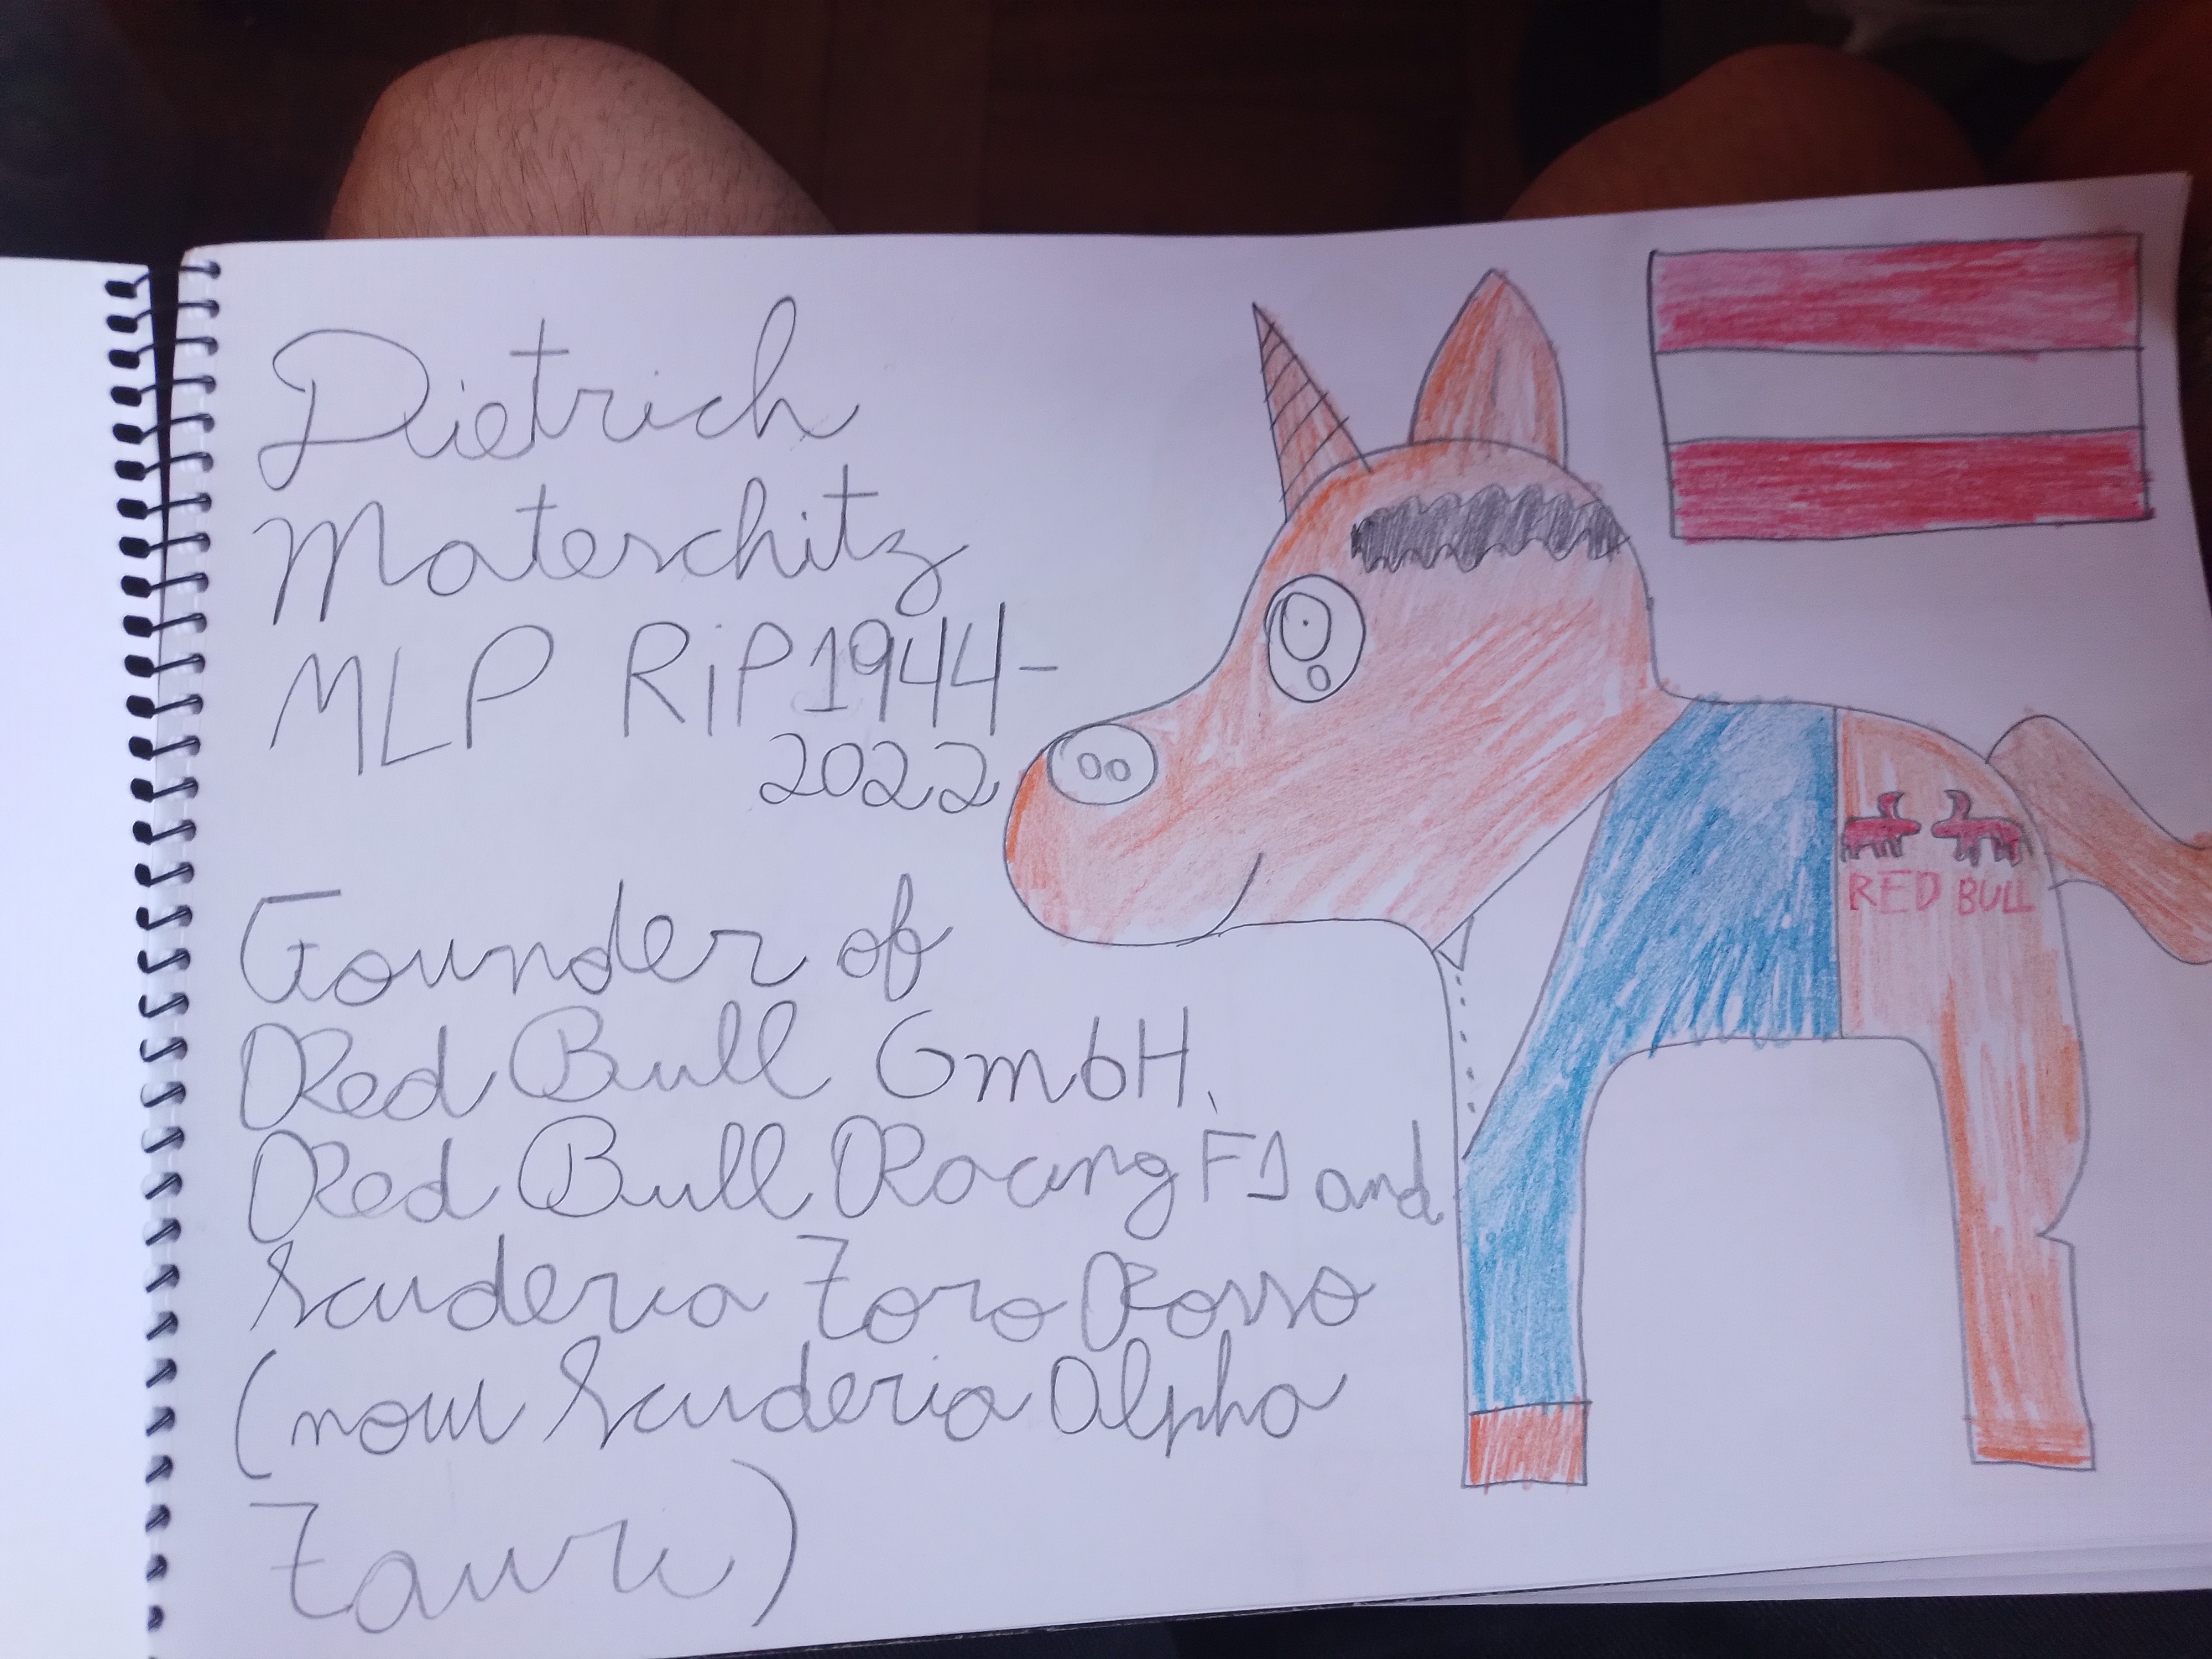 Dietrich
Mateschitz
MLP RiP 1944-
2022
Founder of
Red Bull GmbH,
Red Bull Racing F1 and
Scuderia Toro Rosso
(now Scuderia Alpha
Tauri)
RED BULL